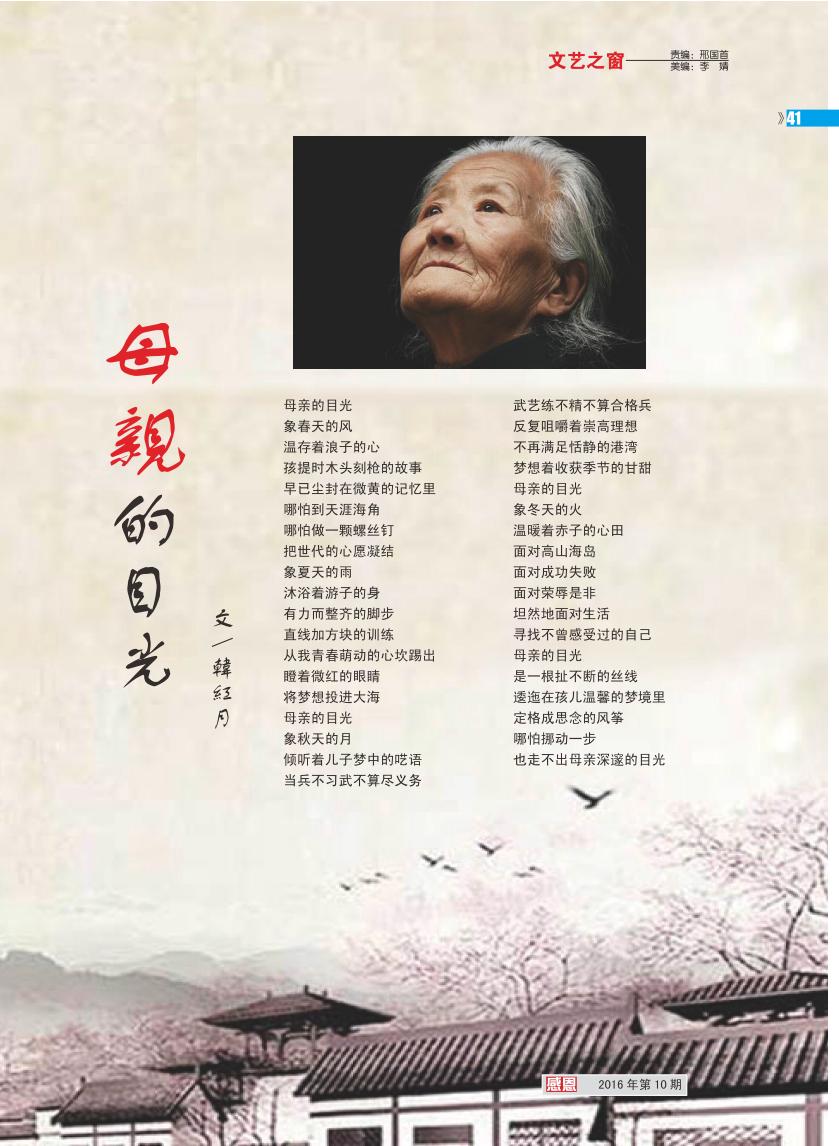 文艺之窗
责编：邢国首
美编：李　婧
》41
母親的目光
文／韓紅月
母亲的目光
象春天的风
温存着浪子的心
孩提时木头刻枪的故事
早已尘封在微黄的记忆里
哪怕到天涯海角
哪怕做一颗螺丝钉
把世代的心愿凝结
象夏天的雨
沐浴着游子的身
有力而整齐的脚步
直线加方块的训练
从我青春萌动的心坎踢出
瞪着微红的眼睛
将梦想投进大海
母亲的目光
象秋天的月
倾听着儿子梦中的呓语
当兵不习武不算尽义务
武艺练不精不算合格兵
反复咀嚼着崇高理想
不再满足恬静的港湾
梦想着收获季节的甘甜
母亲的目光
象冬天的火
温暖着赤子的心田
面对高山海岛
面对成功失败
面对荣辱是非
坦然地面对生活
寻找不曾感受过的自己
母亲的目光
是一根扯不断的丝线
逶迤在孩儿温馨的梦境里
定格成思念的风筝
哪怕挪动一步
也走不出母亲深邃的目光
感恩
2016 年第 10 期